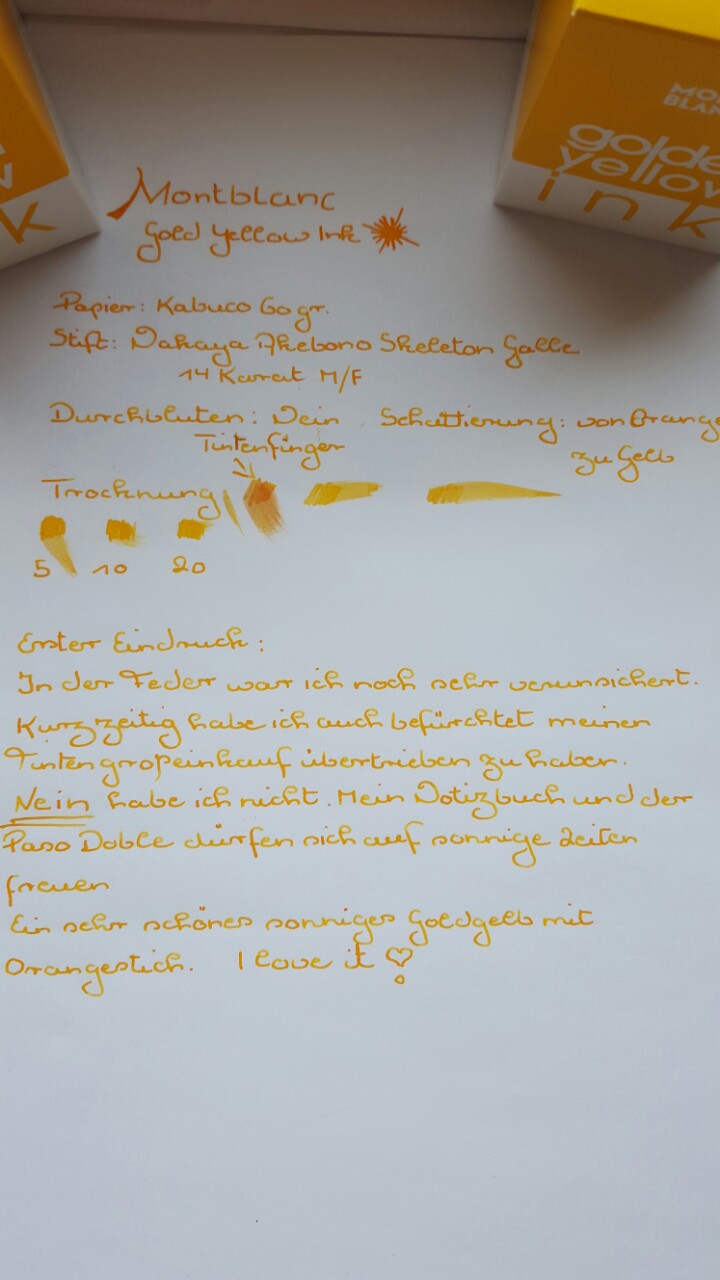 MO
BLAN
golde
yellow
ink
w
k
Montblanc
Gold Yellow Ink
Papier: Kabuco 60 gr.
Stift: Nakaya Akebono Skeleton Galle
14 Karat M/F
Durchbluten: Nein Schattierung: von Orange
zu Gelb
Tintenfinger
Trocknung
5 10 20
Erster Eindruck:
In der Feder war ich noch sehr verunsichert.
Kurzzeitig habe ich auch befürchtet meinen
Tintengroßeinkauf übertrieben zu haben.
Nein habe ich nicht. Mein Notizbuch und der
Paso Doble dürfen sich auf sonnige Zeiten
freuen
Ein sehr schönes sonniges Goldgelb mit
Orangestich. I love it